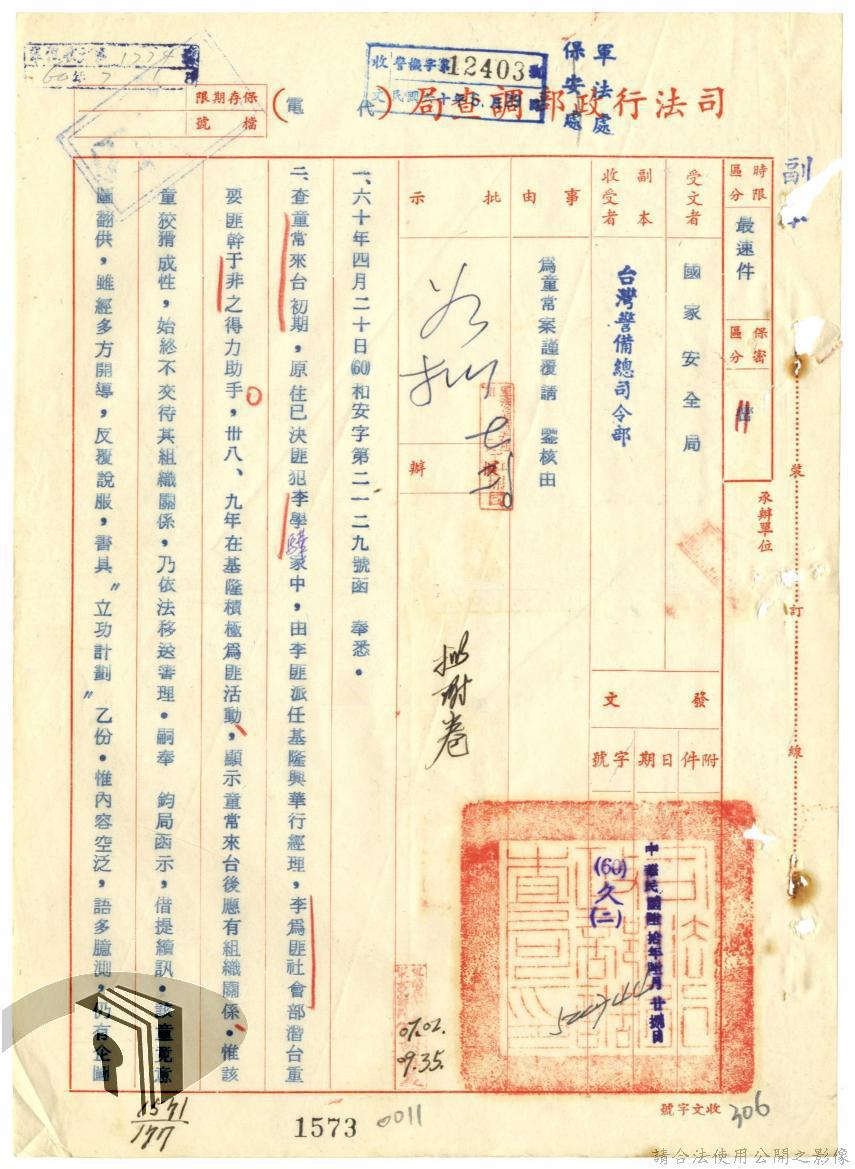 司法行政部調查局（代電）
軍法處
保安處
收文
警檢字第12403號
保存期限
檔號
副本
時限區分
最速件
保密區分
受文者
國家安全局
副本收受者
台灣警備總司令部
事由
為童常案謹復請　鑒核由
批示
擬辦
承辦單位
裝
訂
線
發文
附件
日期
字號
中華民國陸拾年陸月廿捌日
(60)久(二)
擬附卷
一、六十年四月二十日(60)和安字第二一二九號函　奉悉。
二、查童常來台初期，原住已決匪犯李學驊家中，由李匪派任基隆興華行經理，李為匪社會部潛台重
要匪幹于非之得力助手。卅八、九年在基隆積極為匪活動、顯示童常來台後應有組織關係。惟該
童狡猾成性，始終不交待其組織關係，乃依法移送審理。嗣奉　鈞局函示，借提續訊。該童竟意
圖翻供，雖經多方開導，反覆說服，書具〝立功計劃〞乙份。惟內容空泛，語多臆測，仍有企圖
07.02.
09.35.
收文字號
306
1571
177
1573
0011
請合法使用公開之影像